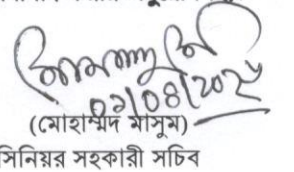 ০৯/০৪/২০২৫
(মোহাম্মদ মাসুম)
সিনিয়র সহকারী সচিব